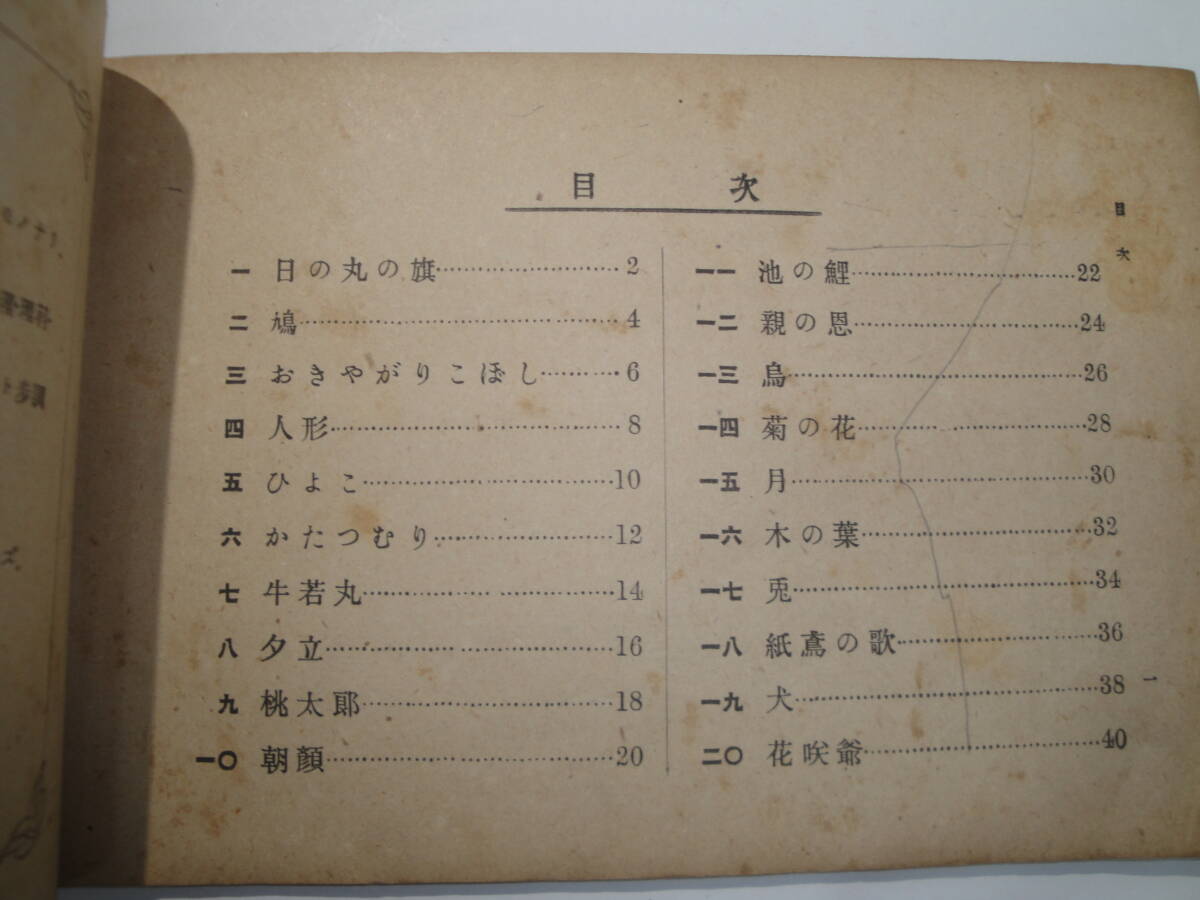 目次
一 日の丸の旗……………………2
二 鳩……………………4
三 おきやがりこぼし……………………6
四 人形……………………8
五 ひよこ……………………10
六 かたつむり……………………12
七 牛若丸……………………14
八 夕立……………………16
九 桃太郎……………………18
一〇 朝顏……………………20
一一 池の鯉……………………22
一二 親の恩……………………24
一三 烏……………………26
一四 菊の花……………………28
一五 月……………………30
一六 木の葉……………………32
一七 兎……………………34
一八 紙鳶の歌……………………36
一九 犬……………………38
二〇 花咲爺……………………40
目次
一